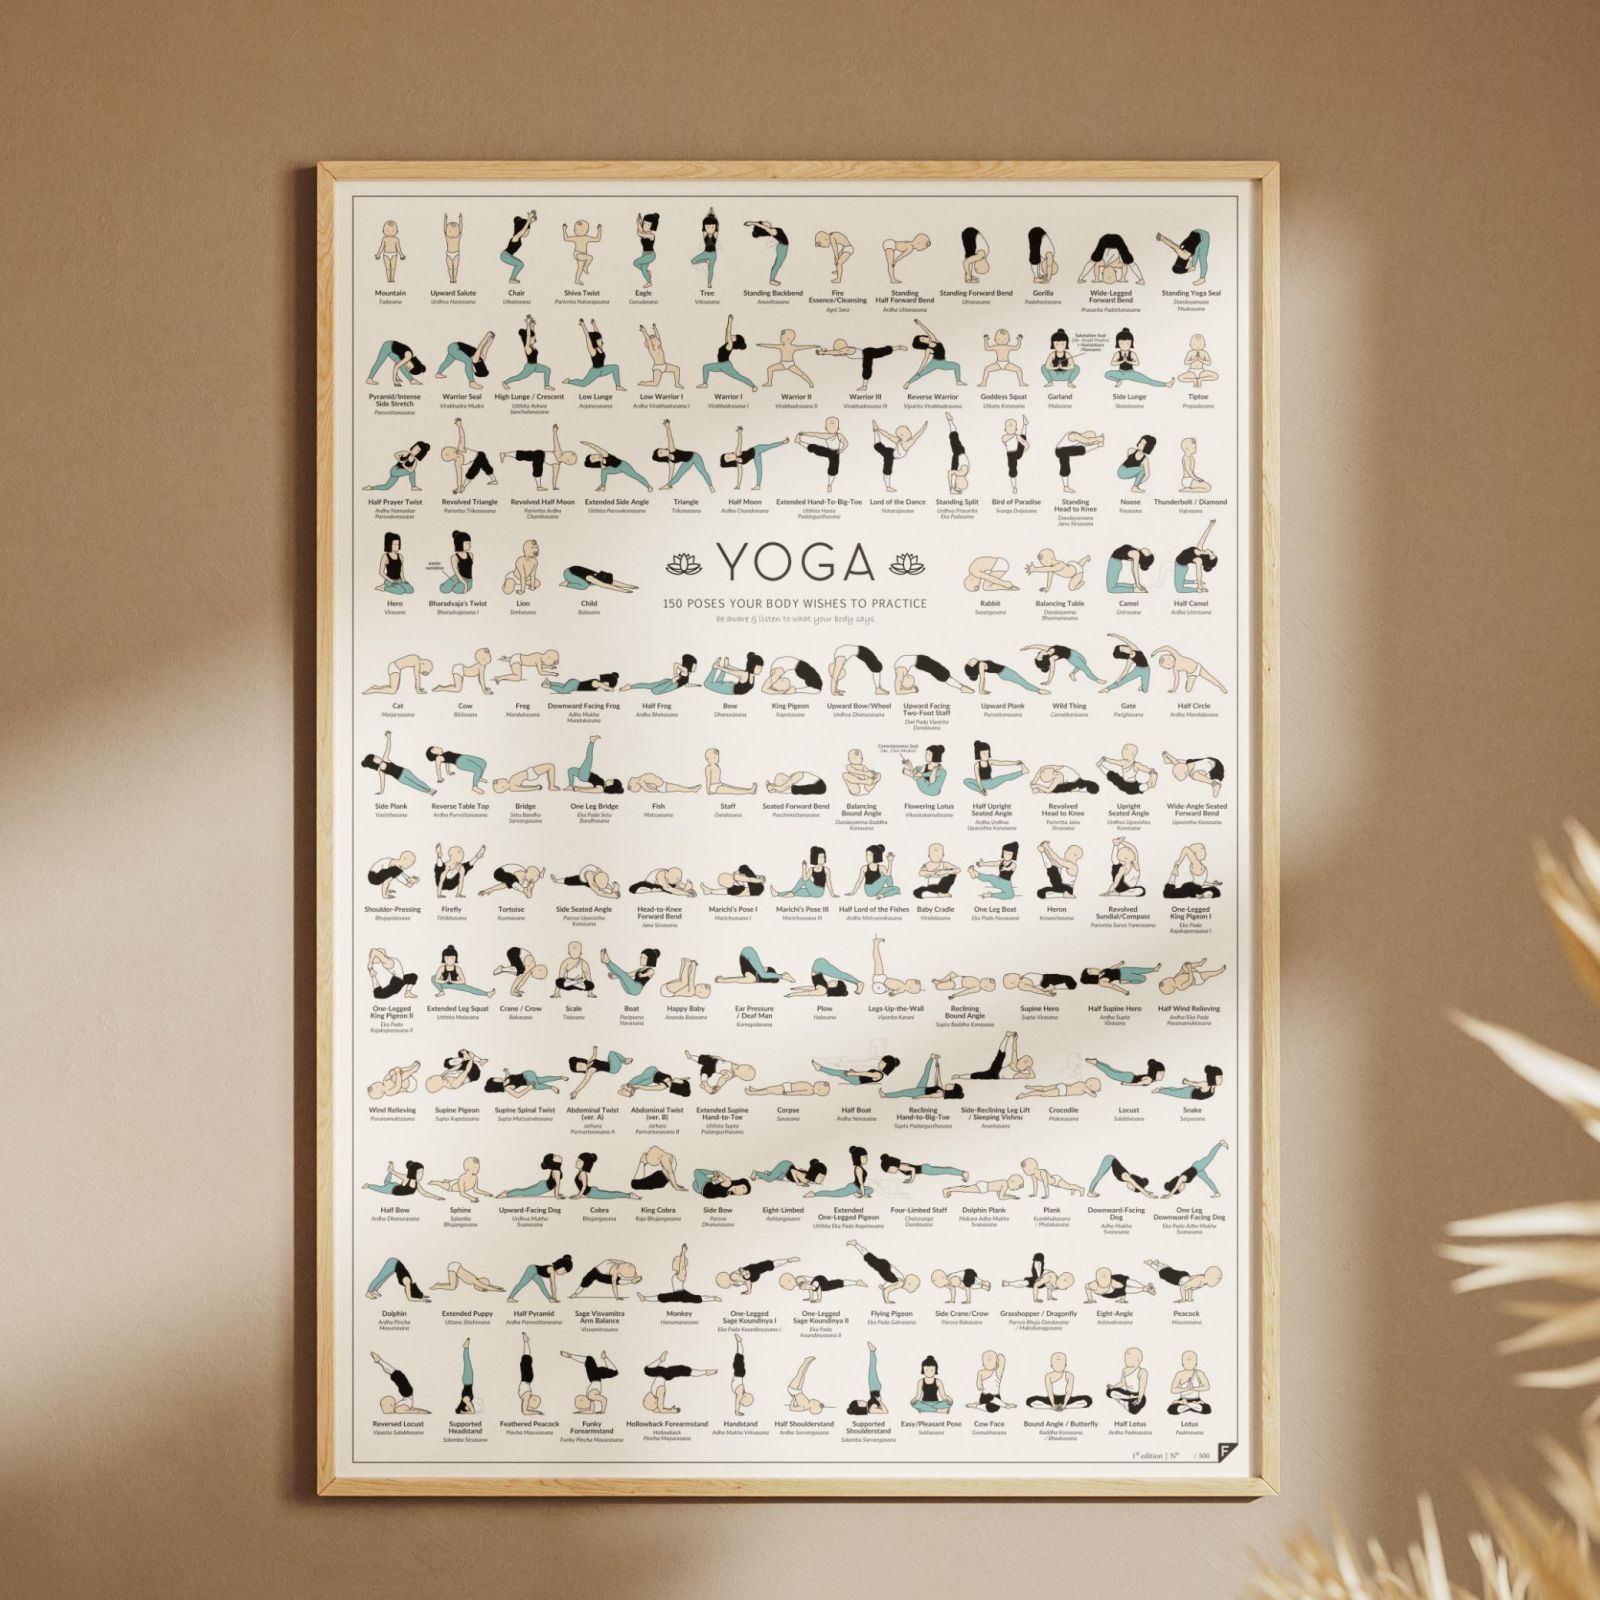 Mountain
Tadasana
Upward Salute
Urdhva Hastasana
Chair
Utkatasana
Shiva Twist
Parivrtta Natarajasana
Eagle
Garudasana
Tree
Vrksasana
Standing Backbend
Anuvittasana
Fire
Essence/Cleansing
Agni Sara
Standing
Half Forward Bend
Ardha Uttanasana
Standing Forward Bend
Uttanasana
Gorilla
Padahastasana
Wide-Legged
Forward Bend
Prasarita Padottanasana
Standing Yoga Seal
Dandayamana
Mudrasana
Pyramid/Intense
Side Stretch
Parsvottanasana
Warrior Seal
Virabhadra Mudra
High Lunge / Crescent
Utthita Ashwa
Sanchalanasana
Low Lunge
Anjaneyasana
Low Warrior I
Ardha Virabhadrasana I
Warrior I
Virabhadrasana I
Warrior II
Virabhadrasana II
Warrior III
Virabhadrasana III
Reverse Warrior
Viparita Virabhadrasana
Goddess Squat
Utkata Konasana
Garland
Malasana
Side Lunge
Skandasana
Tiptoe
Prapadasana
Half Prayer Twist
Ardha Namaskar
Parsvakonasana
Revolved Triangle
Parivrtta Trikonasana
Revolved Half Moon
Parivrtta Ardha
Chandrasana
Extended Side Angle
Utthita Parsvakonasana
Triangle
Trikonasana
Half Moon
Ardha Chandrasana
Extended Hand-To-Big-Toe
Utthita Hasta
Padangusthasana
Lord of the Dance
Natarajasana
Standing Split
Urdhva Prasarita
Eka Padasana
Bird of Paradise
Svarga Dvijasana
Standing
Head to Knee
Dandayamana
Janu Sirsasana
Noose
Pasasana
Thunderbolt / Diamond
Vajrasana
Hero
Virasana
easier
variation
Bharadvaja's Twist
Bharadvajasana I
Lion
Simhasana
Child
Balasana
YOGA
150 POSES YOUR BODY WISHES TO PRACTICE
be aware & listen to what your body says
Rabbit
Sasangasana
Balancing Table
Dandayamana
Bharmanasana
Camel
Ustrasana
Half Camel
Ardha Ustrasana
Cat
Marjaryasana
Cow
Bitilasana
Frog
Mandukasana
Downward Facing Frog
Adho Mukha
Mandukasana
Half Frog
Ardha Bhekasana
Bow
Dhanurasana
King Pigeon
Kapotasana
Upward Bow/Wheel
Urdhva Dhanurasana
Upward Facing
Two-Foot Staff
Dwi Pada Viparita
Dandasana
Upward Plank
Purvottanasana
Wild Thing
Camatkarasana
Gate
Parighasana
Half Circle
Ardha Mandalasana
Side Plank
Vasisthasana
Reverse Table Top
Ardha Purvottanasana
Bridge
Setu Bandha
Sarvangasana
One Leg Bridge
Eka Pada Setu
Bandhasana
Fish
Matsyasana
Staff
Dandasana
Seated Forward Bend
Paschimottanasana
Balancing
Bound Angle
Dandayamana Baddha
Konasana
Flowering Lotus
Vikasitakamalasana
Half Upright
Seated Angle
Ardha Urdhva
Upavistha Konasana
Revolved
Head to Knee
Parivrtta Janu
Sirsasana
Upright
Seated Angle
Urdhva Upavistha
Konasana
Wide-Angle Seated
Forward Bend
Upavistha Konasana
Shoulder-Pressing
Bhujapidasana
Firefly
Tittibhasana
Tortoise
Kurmasana
Side Seated Angle
Parsva Upavistha
Konasana
Head-to-Knee
Forward Bend
Janu Sirsasana
Marichi's Pose I
Marichyasana I
Marichi's Pose III
Marichyasana III
Half Lord of the Fishes
Ardha Matsyendrasana
Baby Cradle
Hindolasana
One Leg Boat
Eka Pada Navasana
Heron
Krounchasana
Revolved
Sundial/Compass
Parivrtta Surya Yantrasana
One-Legged
King Pigeon I
Eka Pada
Rajakapotasana I
One-Legged
King Pigeon II
Eka Pada
Rajakapotasana II
Extended Leg Squat
Utthita Malasana
Crane / Crow
Bakasana
Scale
Tolasana
Boat
Paripurna
Navasana
Happy Baby
Ananda Balasana
Ear Pressure
/ Deaf Man
Karnapidasana
Plow
Halasana
Legs-Up-the-Wall
Viparita Karani
Reclining
Bound Angle
Supta Baddha Konasana
Supine Hero
Supta Virasana
Half Supine Hero
Ardha Supta
Virasana
Half Wind Relieving
Ardha/Eka Pada
Pavanamuktasana
Wind Relieving
Pavanamuktasana
Supine Pigeon
Supta Kapotasana
Supine Spinal Twist
Supta Matsyendrasana
Abdominal Twist
(ver. A)
Jathara
Parivartanasana A
Abdominal Twist
(ver. B)
Jathara
Parivartanasana B
Extended Supine
Hand-to-Toe
Utthita Supta
Padangusthasana
Corpse
Savasana
Half Boat
Ardha Navasana
Reclining
Hand-to-Big-Toe
Supta Padangusthasana
Side-Reclining Leg Lift
/ Sleeping Vishnu
Anantasana
Crocodile
Makarasana
Locust
Salabhasana
Snake
Sarpasana
Half Bow
Ardha Dhanurasana
Sphinx
Salamba
Bhujangasana
Upward-Facing Dog
Urdhva Mukha
Svanasana
Cobra
Bhujangasana
King Cobra
Raja Bhujangasana
Side Bow
Parsva
Dhanurasana
Eight-Limbed
Ashtangasana
Extended
One-Legged Pigeon
Utthita Eka Pada Kapotasana
Four-Limbed Staff
Chaturanga
Dandasana
Dolphin Plank
Makara Adho Mukha
Svanasana
Plank
Kumbhakasana
/ Phalakasana
Downward-Facing
Dog
Adho Mukha
Svanasana
One Leg
Downward-Facing Dog
Eka Pada Adho Mukha
Svanasana
Dolphin
Ardha Pincha
Mayurasana
Extended Puppy
Uttana Shishosana
Half Pyramid
Ardha Parsvottanasana
Sage Visvamitra
Arm Balance
Visvamitrasana
Monkey
Hanumanasana
One-Legged
Sage Koundinya I
Eka Pada Koundinyasana I
One-Legged
Sage Koundinya II
Eka Pada
Koundinyasana II
Flying Pigeon
Eka Pada Galavasana
Side Crane/Crow
Parsva Bakasana
Grasshopper / Dragonfly
Parsva Bhuja Dandasana
/ Maksikanagasana
Eight-Angle
Astavakrasana
Peacock
Mayurasana
Reversed Locust
Viparita Salabhasana
Supported
Headstand
Salamba Sirsasana
Feathered Peacock
Pincha Mayurasana
Funky
Forearmstand
Funky Pincha Mayurasana
Hollowback Forearmstand
Hollowback
Pincha Mayurasana
Handstand
Adho Mukha Vrksasana
Half Shoulderstand
Ardha Sarvangasana
Supported
Shoulderstand
Salamba Sarvangasana
Easy/Pleasant Pose
Sukhasana
Cow Face
Gomukhasana
Bound Angle / Butterfly
Baddha Konasana
/ Bhadrasana
Half Lotus
Ardha Padmasana
Lotus
Padmasana
1st edition | Nº / 500
F